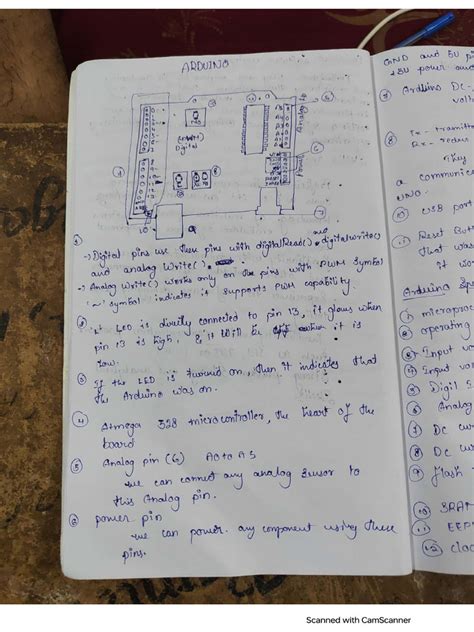 ARDUINO
Digital
Analog to
Power
① → Digital pins use these pins with digitalRead(), digitalwrite()
and analog Write().
→ Analog Write() works only on the pins with PWM symbol
'~' symbol indicates it supports PWM capability.
② LED is directly connected to pin 13, it glows when
pin 13 is high. & it will be off when it is
low.
③ If the LED is turned on, then it indicates that
the Arduino was on.
④ Atmega 328 microcontroller, the heart of the
board
⑤ Analog pin (6) A0 to A5
we can connect any analog sensor to
this analog pin.
⑥ power pin
we can power any component using these
pins.
GND and 5V pi
+5V power and
⑦ Arduino DC-
⑧ Tx - transmitt
Rx -
They
a communica
UNO.
USB port
⑪ Reset Butt
that was
it
Arduino Spe
① microproc
② operating
③ Input vo
④ Input vo
⑤
⑥ Analog
⑦ DC cur
⑧ DC cu
⑨ flash
⑩ SRAM
⑪ EEP
⑫ cloc
Scanned with CamScanner